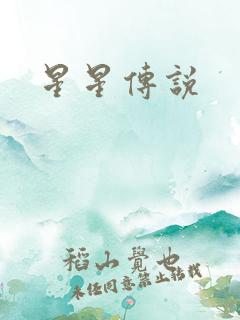 星星傳說
稻山覺也
未経同意禁止転載